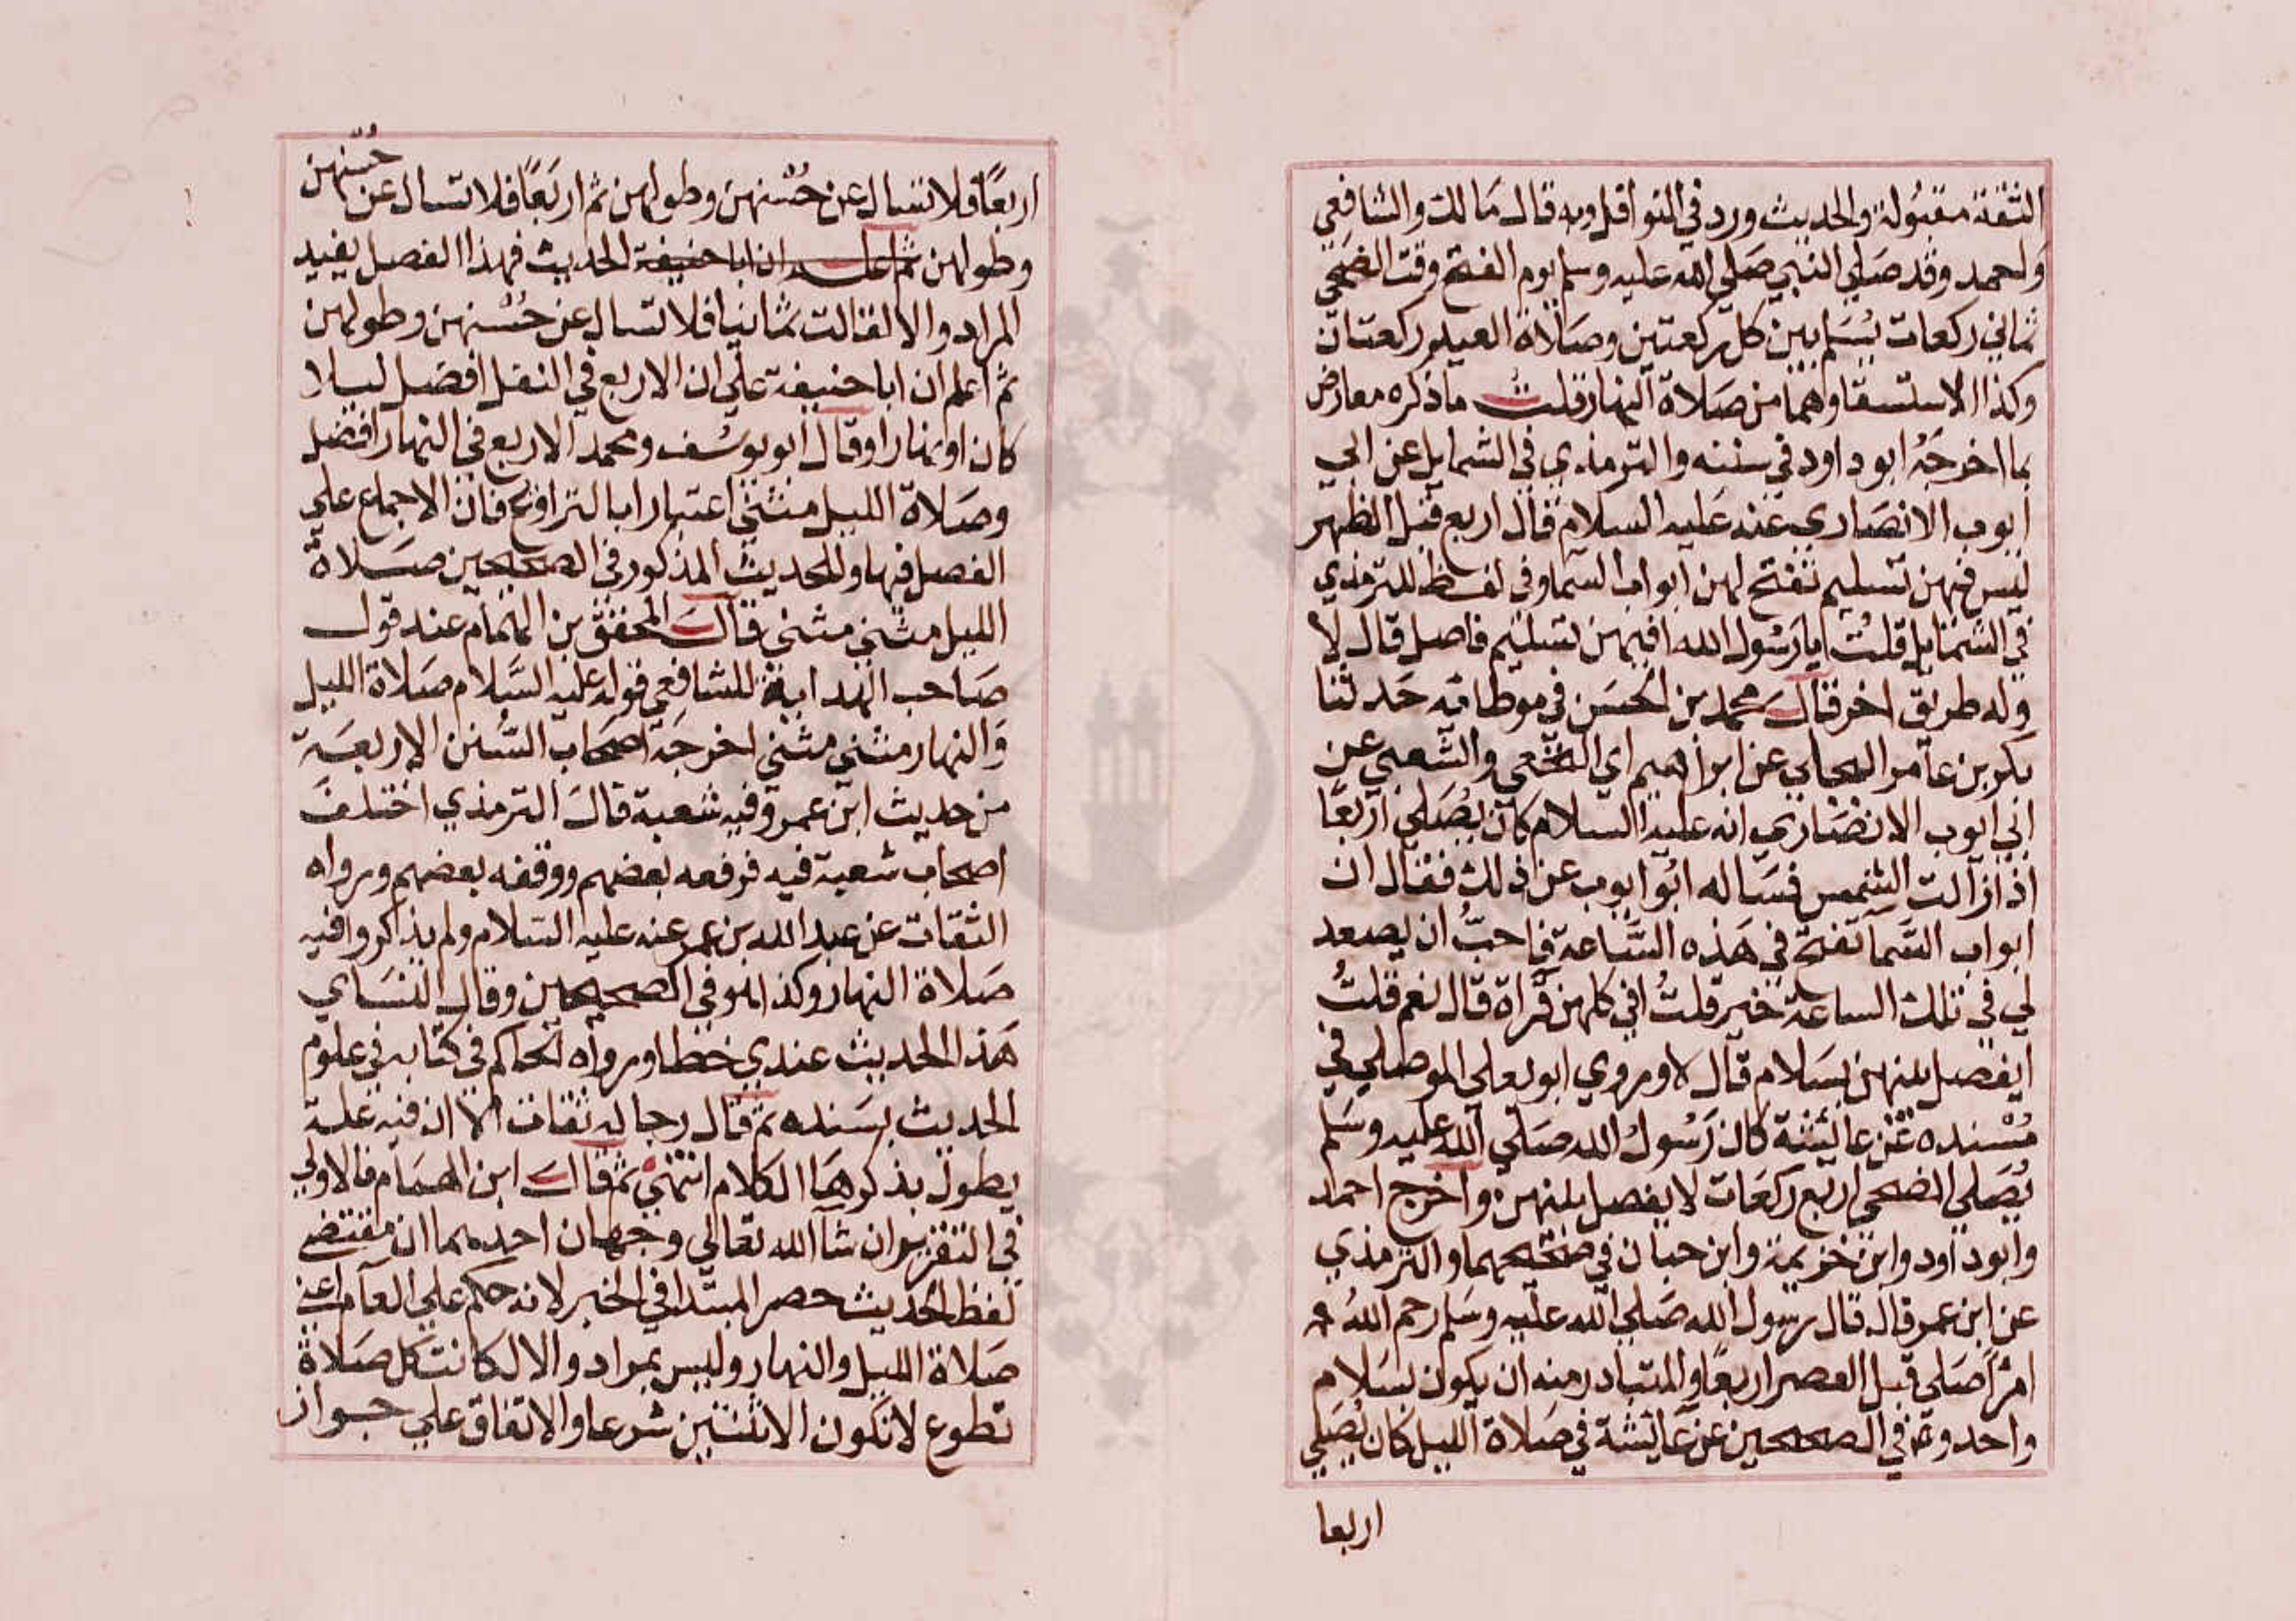 الثقة مقبولة والحديث ورد في النوافل وبه قال مالك والشافعي
واحمد وقد صلي النبي صلي الله عليه وسلم يوم الفتح وقت الضحي
ثماني ركعات يسلم بين كل ركعتين وصلاة العيد ركعتان
وكذا الاستسقا وهما من صلاة النهار قلت ما ذكره معارض
بما اخرجه ابو داود في سننه والترمذي في الشمايل عن ابي
ايوب الانصاري عنه عليه السلام قال اربع قبل الظهر
ليس فيهن تسليم تفتح لهن ابواب السما وفي لفظ للترمذي
في الشمايل قلت يا رسول الله افيهن تسليم فاصل قال لا
وله طريق اخر قال محمد بن الحسن في موطائه حدثنا
بكر بن عامر البجلي عن ابراهيم اي النخعي والشعبي عن
ابي ايوب الانصاري انه عليه السلام كان يصلي اربعا
اذا زالت الشمس فساله ابو ايوب عن ذلك فقال ان
ابواب السما تفتح في هذه الساعة فاحب ان يصعد
لي في تلك الساعة خير قلت افي كلهن قراة قال نعم قلت
ايفصل بينهن بسلام قال لا وروي ابو يعلي الموصلي في
مسنده عن عائشة كان رسول الله صلي الله عليه وسلم
يصلي الضحي اربع ركعات لا يفصل بينهن واخرج احمد
وابو داود وابن خزيمة وابن حبان في صحيحهما والترمذي
عن ابن عمر قال قال رسول الله صلي الله عليه وسلم رحم الله
امرأ صلي قبل العصر اربعا والمتبادر منه ان يكون بسلام
واحد وفي الصحيحين عن عايشة في صلاة الليل كان يصلي
اربعا
اربعا فلا تسال عن حسنهن وطولهن ثم اربعا فلا تسال عن حسنهن
وطولهن ثم اعلم ان ابا حنيفة الحديث فهذا الفصل يفيد
المراد والا لقالت ثمانيا فلا تسال عن حسنهن وطولهن
ثم اعلم ان ابا حنيفة علي ان الاربع في النفل افضل ليلا
كان او نهارا وقال ابو يوسف ومحمد الاربع في النهار افضل
وصلاة الليل مثني اعتبارا بالتراويح فان الاجماع علي
الفصل فيها وللحديث المذكور في الصحيحين صلاة
الليل مثني مثني قال المحقق بن الهمام عند قول
صاحب الهداية للشافعي قوله عليه السلام صلاة الليل
والنهار مثني مثني اخرجه اصحاب السنن الاربعة
من حديث ابن عمر وفيه شعبة قال الترمذي اختلف
اصحاب شعبة فيه فرفعه بعضهم ووقفه بعضهم ورواه
الثقات عن عبد الله بن عمر عنه عليه السلام ولم يذكروا فيه
صلاة النهار وكذا هو في الصحيحين وقال النساي
هذا الحديث عندي خطا ورواه الحاكم في كتابه في علوم
الحديث بسنده ثم قال رجاله ثقات الا ان فيه علة
يطول بذكرها الكلام انتهي ثم قال ابن الهمام فالاولي
في التقرير ان شا الله تعالي وجهان احدهما ان مقتضي
لفظ الحديث حصر المبتدا في الخبر لانه حكم علي العام اعني
صلاة الليل والنهار وليس بمراد والا لكانت كل صلاة
تطوع لا تكون الا ثنتين شرعا والاتفاق علي جواز